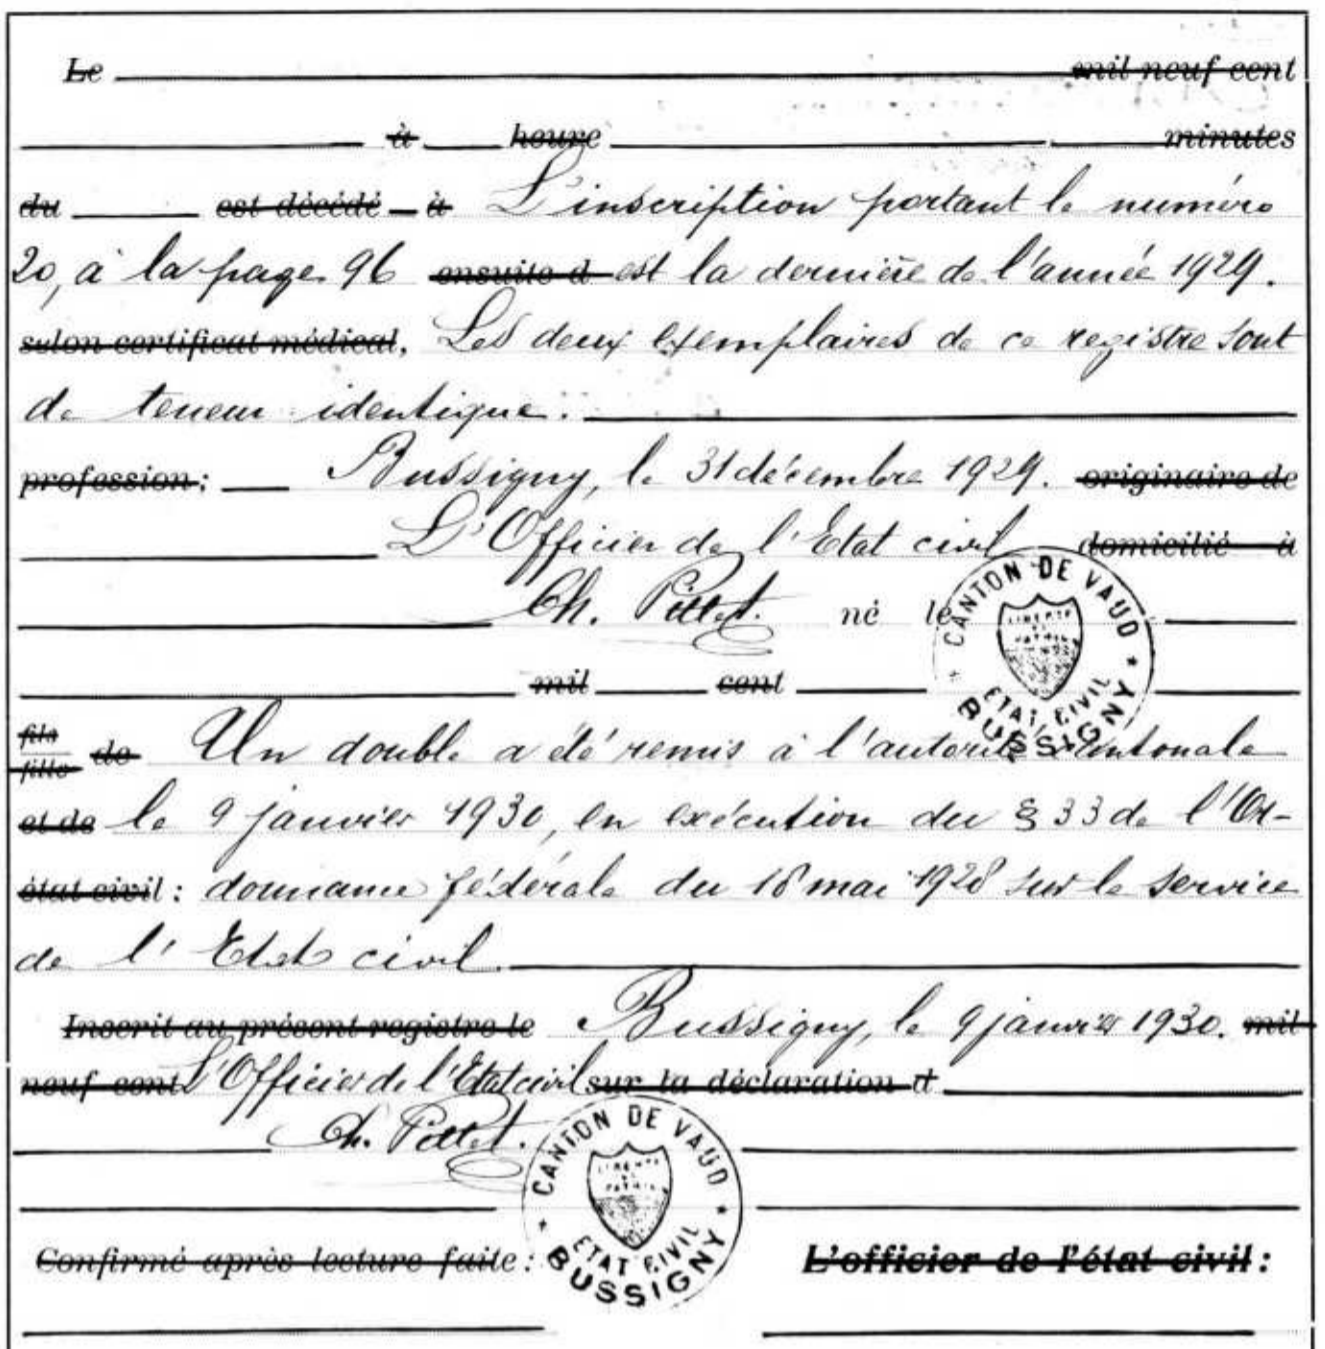 Le mil neuf cent
à heure minutes
du est décédé à L'inscription portant le numéro
20, à la page 96 ensuite d est la dernière de l'année 1929.
selon certificat médical, Les deux exemplaires de ce registre sont
de teneur identique.
profession: Bussigny, le 31 décembre 1929. originaire de
L'Officier de l'Etat civil domicilié à
Ch. Pittet. né le
CANTON DE VAUD
LIBERTÉ ET PATRIE
ETAT CIVIL
BUSSIGNY
mil cent
fils
fille de Un double a été remis à l'autorité cantonale
et de le 9 janvier 1930, en exécution du § 33 de l'Or-
état civil: donnance fédérale du 18 mai 1928 sur le service
de l'Etat civil.
Inscrit au présent registre le Bussigny, le 9 janvier 1930. mil
neuf cent L'Officier de l'Etat civil sur la déclaration d
Ch. Pittet.
CANTON DE VAUD
LIBERTÉ ET PATRIE
ETAT CIVIL
BUSSIGNY
Confirmé après lecture faite: L'officier de l'état civil: